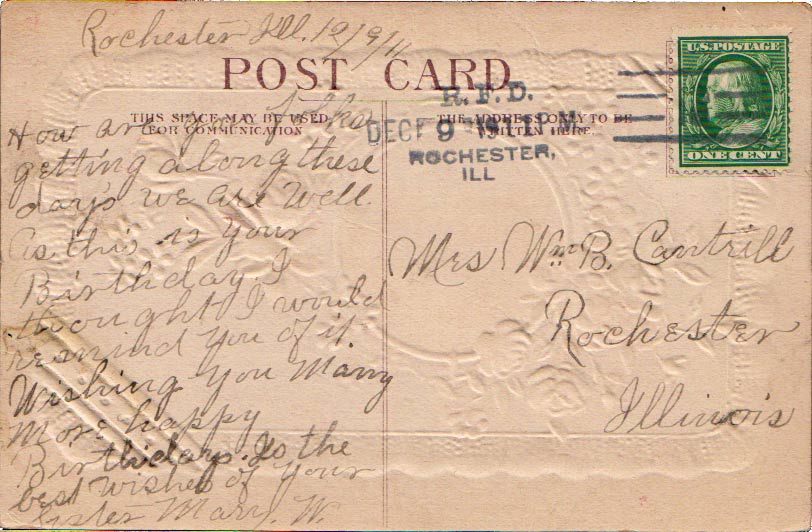 Rochester Ill. 12/9/11
POST CARD
THIS SPACE MAY BE USED
FOR COMMUNICATION
THE ADDRESS ONLY TO BE
WRITTEN HERE.
R. F. D.
DEC 9
ROCHESTER,
ILL
U.S. POSTAGE
ONE CENT
How are you folks
getting along these
days we are well.
As this is your
Birthday I
thought I would
remind you of it
Wishing You Many
More happy
Birthdays. Is the
best wishes of your
Sister Mary. W.
Mrs Wm B. Cantrill
Rochester
Illinois